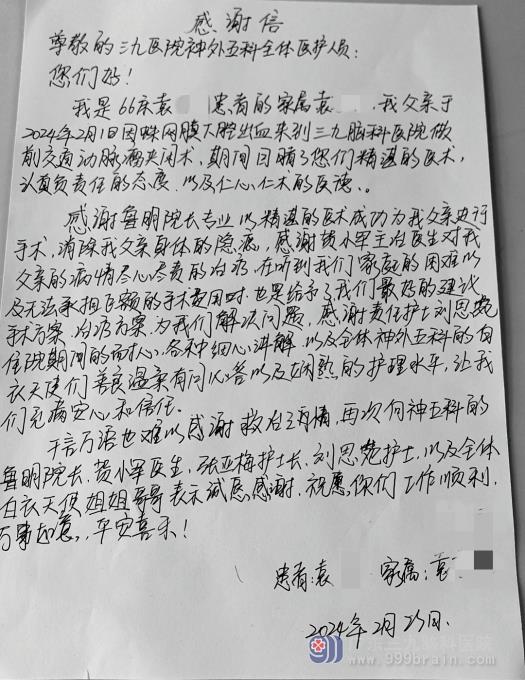 感谢信
尊敬的三九医院神外五科全体医护人员:
您们好!
我是66床袁 患者的家属袁 , 我父亲于
2024年2月1日因蛛网膜下腔出血来到三九脑科医院做
前交通动脉瘤夹闭术, 期间目睹了您们精湛的医术,
认真负责任的态度, 以及仁心仁术的医德、。
感谢鲁明院长专业以精湛的医术成功为我父亲进行
手术, 消除我父亲身体的隐患, 感谢黄小军主治医生对我
父亲的病情尽心尽责的治疗, 在听到我们家庭的困难以
及无法承担巨额的手术费用时, 也是给予了我们最好的建议
手术方案, 治疗方案, 为我们解决问题, 感谢责任护士刘思苑
住院期间的耐心, 各种细心讲解, 以及全体神外五科的白
衣天使们善良温柔有问必答以及娴熟的护理水平, 让我
们充满安心和信任.
千言万语也难以感谢救治之情, 再次向神五科的
鲁明院长, 黄小军医生, 张亚梅护士长, 刘思苑护士, 以及全体
白衣天使姐姐哥哥表示诚恳感谢, 祝愿你们工作顺利,
万事如意, 平安喜乐!
患者:袁 家属:袁
2024年2月25日.
三九脑科医院
www.999brain.com